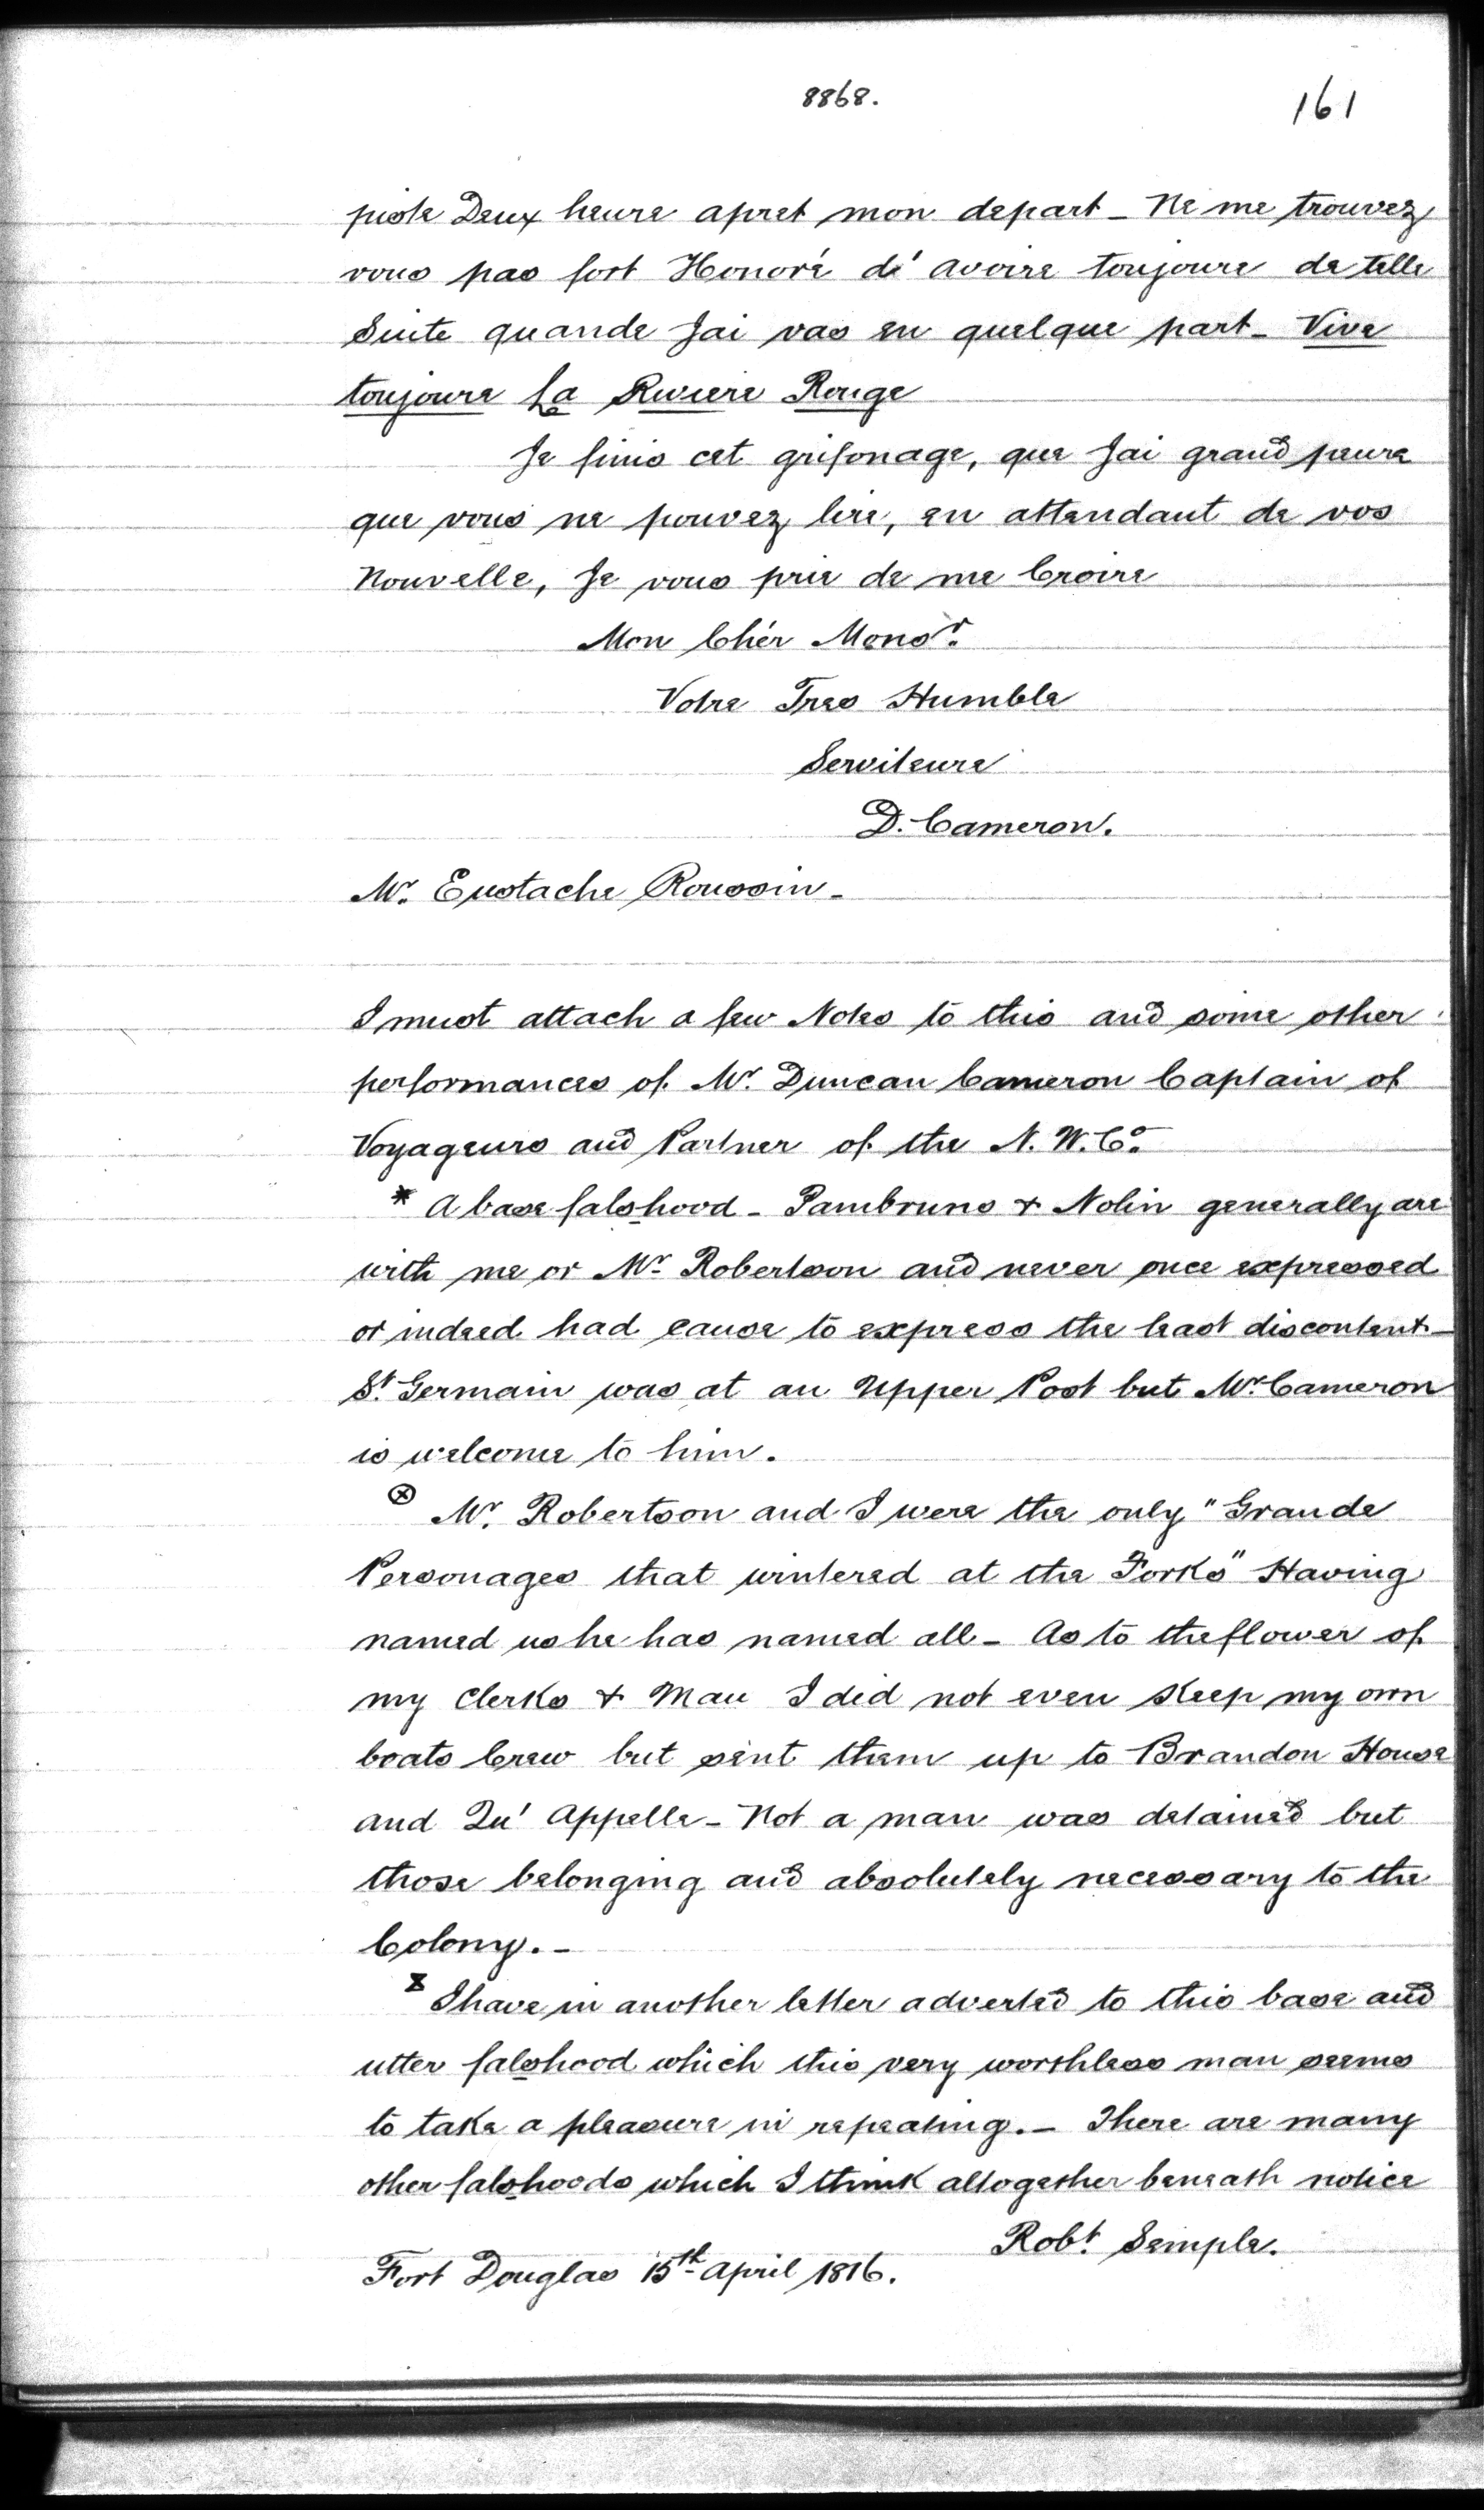 8868.
161
piste Deux heure apret mon depart _ Ne me trouvez
vous pas fort Honoré dé avoire toujoure de telle
Suite quande Jai vas en quelque part _ Vive
toujoure La Riviere Rouge
Je finis cet grifonage, que Jai grand peure
que vous ne pouvez lire, en attendant de vos
Nouvelle, Je vous prie de me Croire
Mon Chér Monsr.
Votre Tres Humble
Serviteure
D. Cameron.
Mr. Eustache Roussin _
I must attach a few Notes to this and some other
performances of Mr. Duncan Cameron Captain of
Voyageurs and Partner of the N. W. Co.
* A base falshood _ Pambruns & Nolin generally are
with me or Mr. Robertson and never once expressed
or indeed had cause to express the least discontent _
St. Germain was at an Upper Post but Mr. Cameron
is welcome to him.
⊗ Mr. Robertson and I were the only "Grande
Personages that wintered at the Forks" Having
named us he has named all _ As to the flower of
my Clerks & Men I did not even Keep my own
boats Crew but sent them up to Brandon House
and Qu' Appelle _ Not a man was detained but
those belonging and absolutely necessary to the
Colony. _
x I have in another letter adverted to this base and
utter falshood which this very worthless man seems
to take a pleasure in repeating. _ There are many
other falshoods which I think altogether beneath notice
Robt. Semple.
Fort Douglas 15th April 1816.